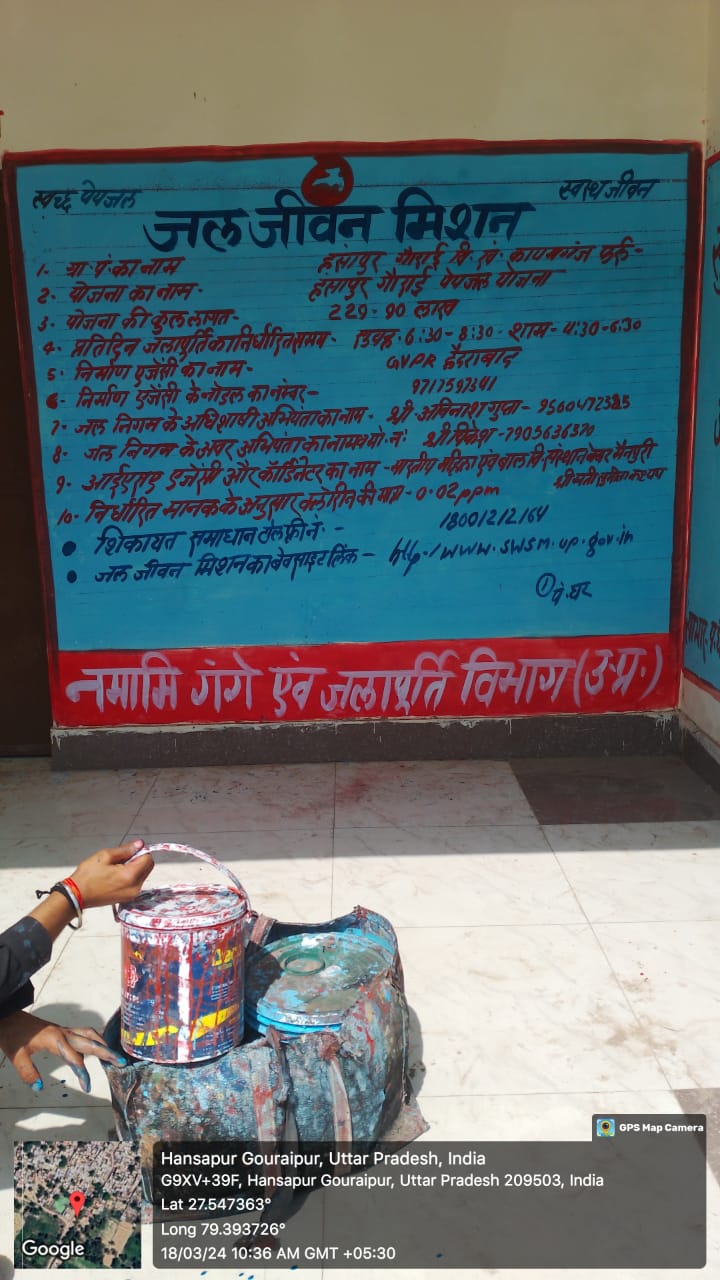 स्वच्छ पेयजल
स्वस्थ जीवन
जल जीवन मिशन
1. ग्रा पं का नाम हंसापुर गौराई वि. खं. कायमगंज फर्रु-
2. योजना का नाम- हंसापुर गौराई पेयजल योजना
3. योजना की कुल लागत- 229-90 लाख
4. प्रतिदिन जलापूर्ति का निर्धारित समय- सुबह- 6:30-8:30- शाम- 4:30-6:30
5. निर्माण एजेंसी का नाम- GVPR हैदराबाद
6- निर्माण एजेंसी के नोडल का नंबर- 9717597341
7- जल निगम के अधिशाषी अभियंता का नाम- श्री अविनाश गुप्ता-
8. जल निगम के अवर अभियंता का नाम व मो. नं: श्री विकेश-7905636370
9. आईएसए एजेंसी और कॉर्डिनेटर का नाम- भारतीय महिला एवं बाल वि. संस्थान मैनपुरी
श्रीमती सुनीता कश्यप
10. निर्धारित मानक के अनुसार क्लोरीन की मात्रा - 0.02ppm
• शिकायत समाधान टोल फ्री नं. - 18001212164
• जल जीवन मिशन का बेवसाइट लिंक- www.swsm.up.gov.in
① पं. घर
नमामि गंगे एंव जलापूर्ति विभाग (उ.प्र.)
GPS Map Camera
Hansapur Gouraipur, Uttar Pradesh, India
G9XV+39F, Hansapur Gouraipur, Uttar Pradesh 209503, India
Lat 27.547363°
Long 79.393726°
18/03/24 10:36 AM GMT +05:30
Google